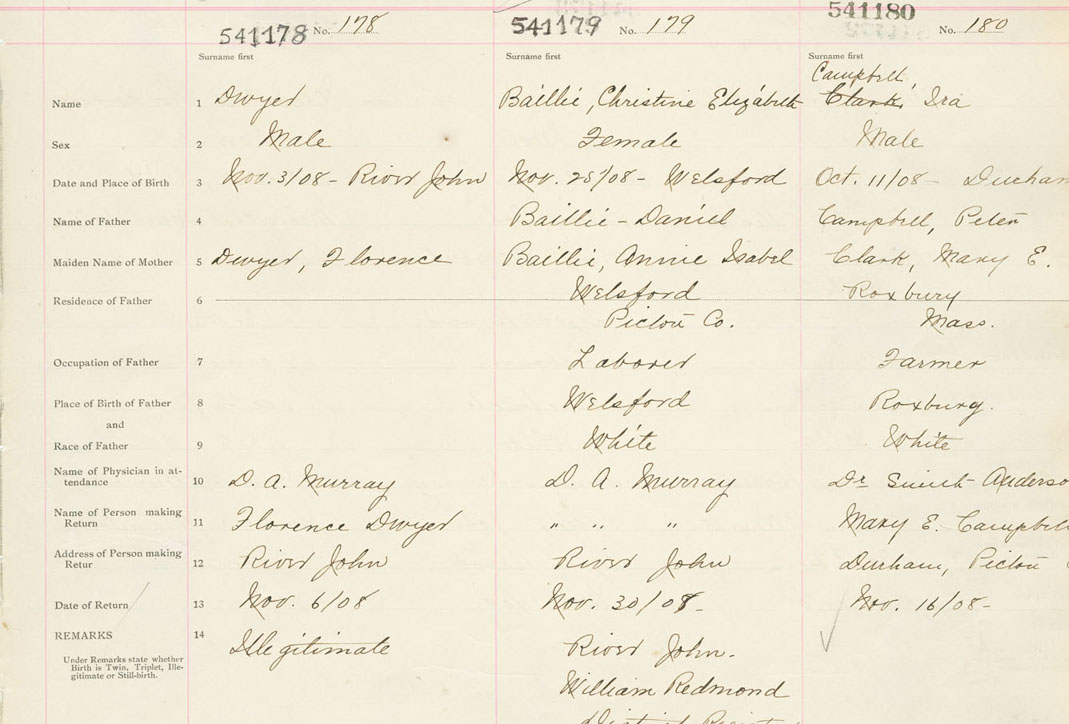 541178 No. 178 541179 No. 179 541180 No. 180
Surname first Surname first Surname first
Campbell,
Name 1 Dwyer Baillie, Christine Elizabeth Clark, Ira
Sex 2 Male Female Male
Date and Place of Birth 3 Nov. 3/08 - River John Nov. 28/08 - Welsford Oct. 11/08 - Durham
Name of Father 4 Baillie - Daniel Campbell, Peter
Maiden Name of Mother 5 Dwyer, Florence Baillie, Annie Isabel Clark, Mary E.
Residence of Father 6 Welsford Roxbury
Pictou Co. Mass.
Occupation of Father 7 Laborer Farmer
Place of Birth of Father 8 Welsford Roxbury.
and
Race of Father 9 White White
Name of Physician in at-
tendance 10 D. A. Murray D. A. Murray Dr Anderso
Name of Person making
Return 11 Florence Dwyer " " " Mary E. Campbell
Address of Person making
Retur 12 River John River John Durham, Pictou
Date of Return 13 Nov. 6/08 Nov. 30/08 - Nov. 16/08 -
REMARKS 14 Illegitimate River John.
Under Remarks state whether
Birth is Twin, Triplet, Ille-
gitimate or Still-birth.
William Redmond
District